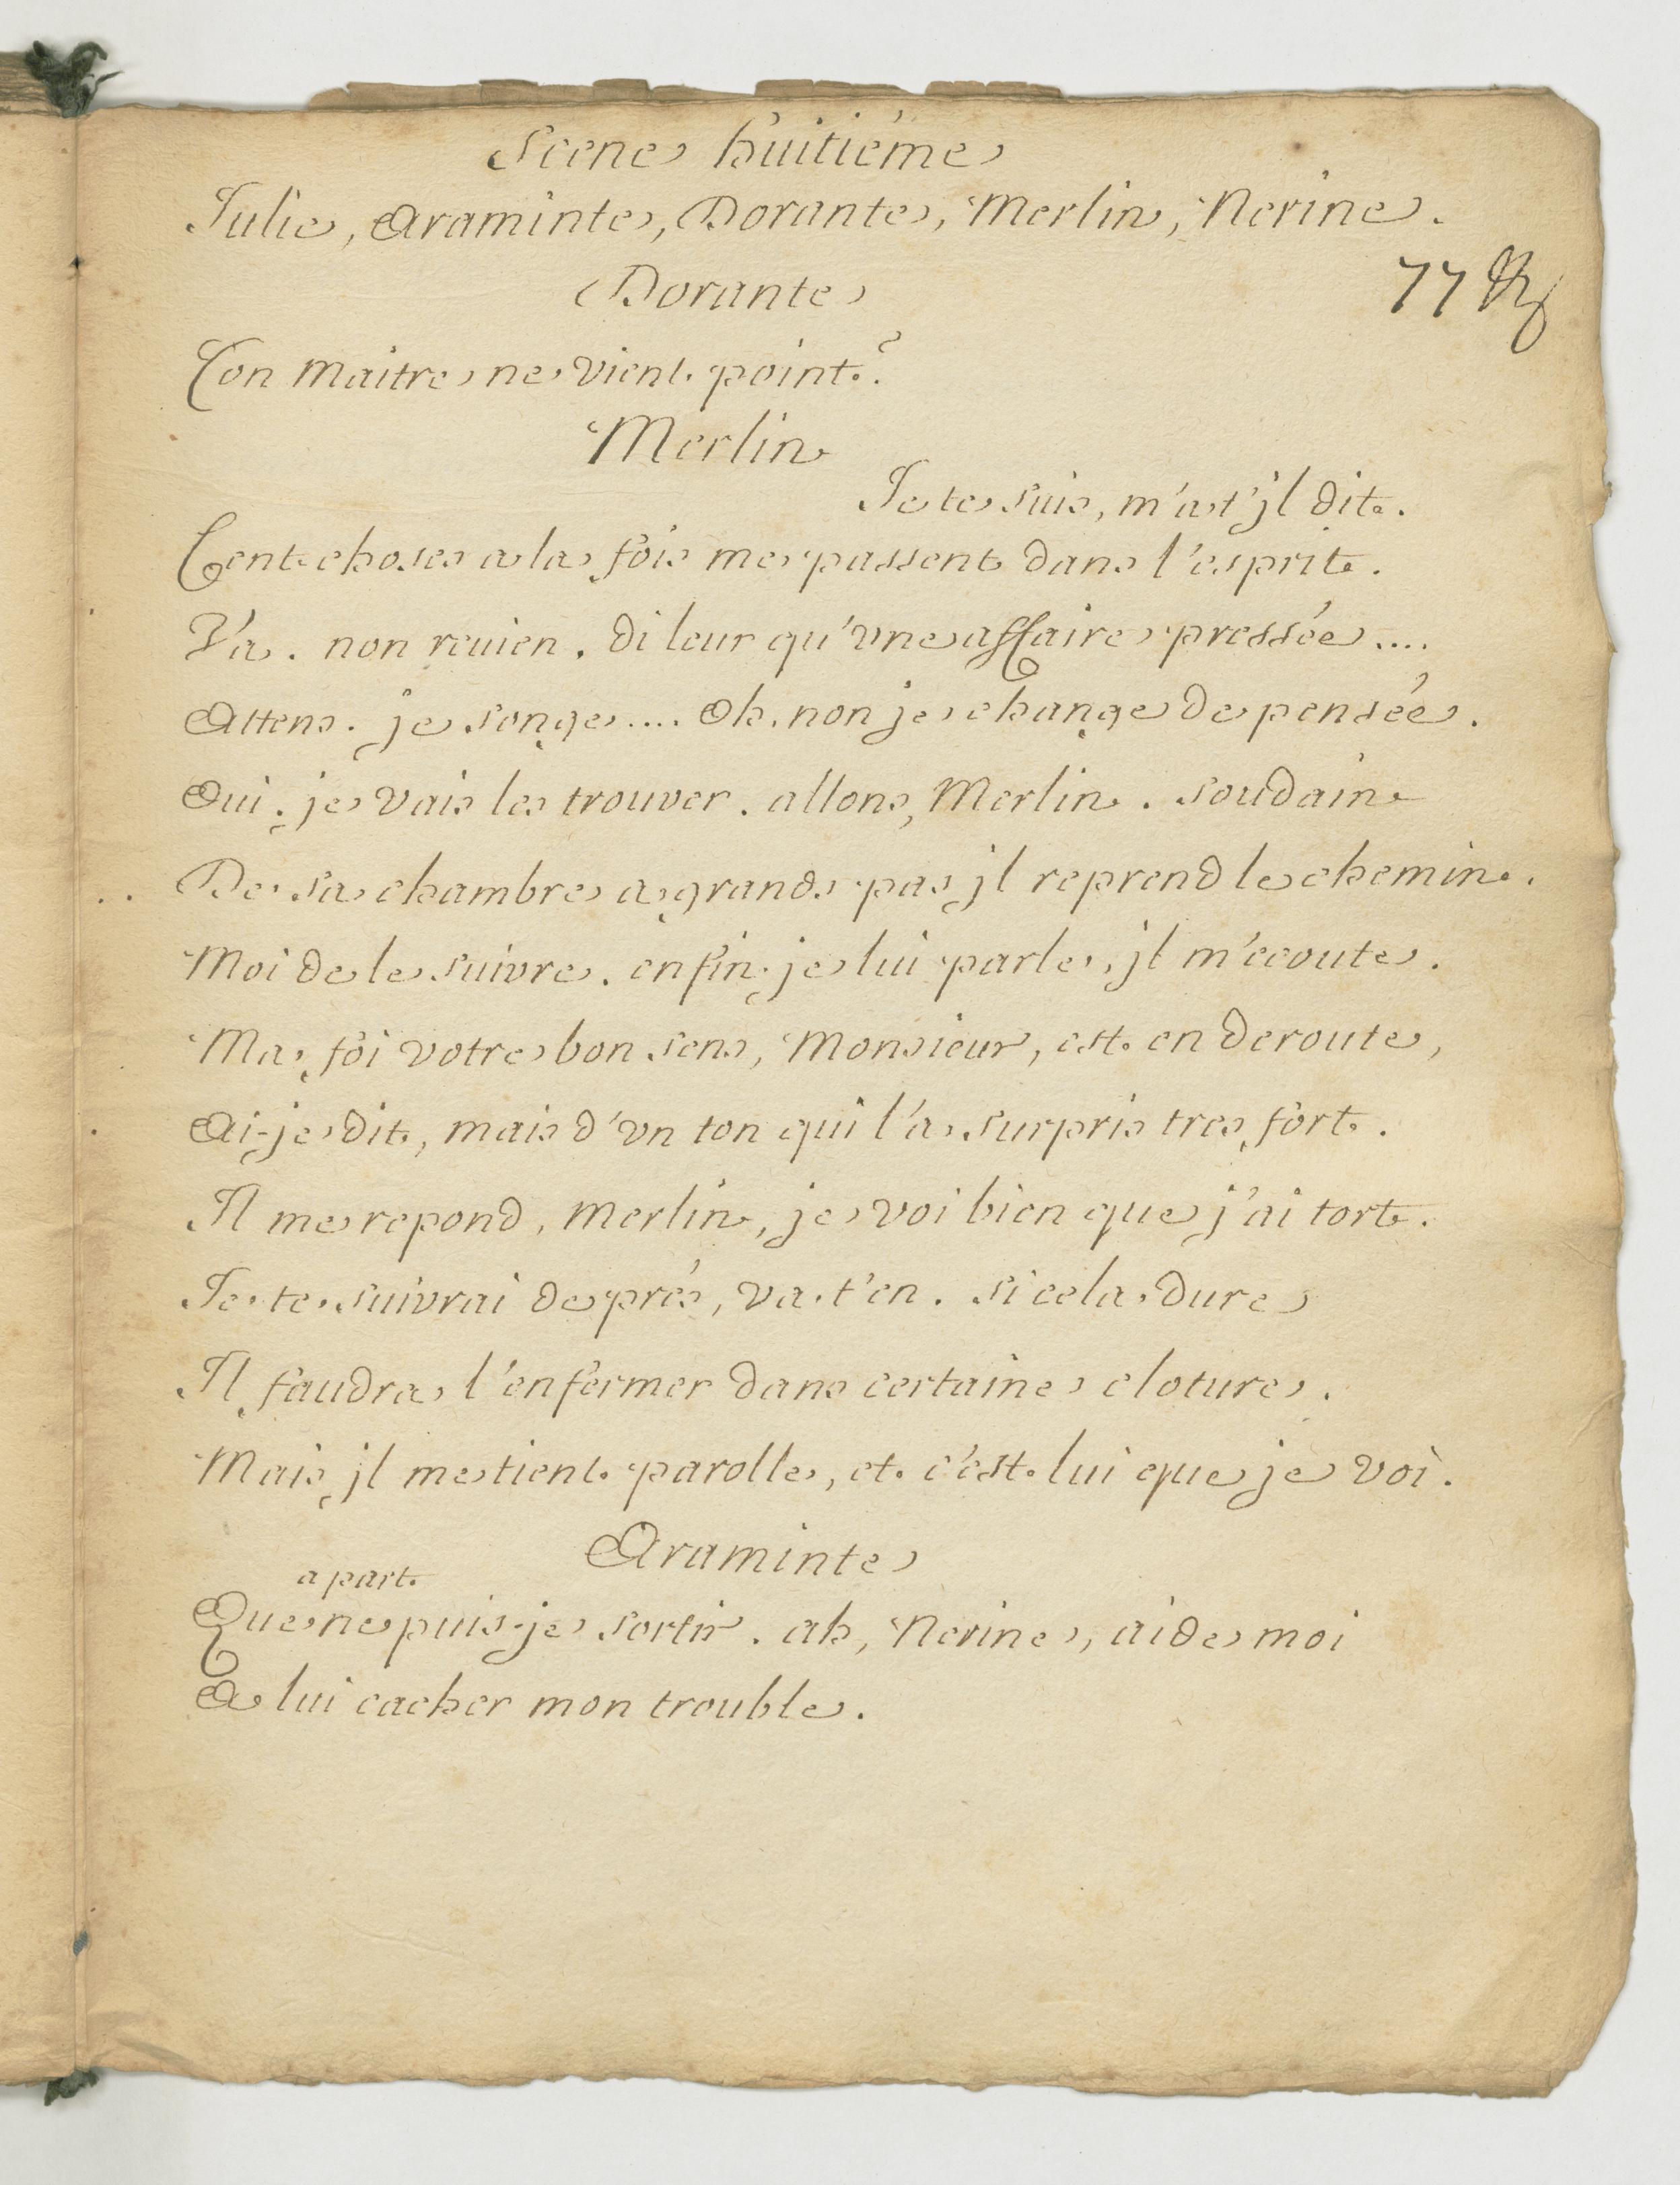 Scene huitiéme
Julie, Araminte, Dorante, Merlin, Nerine.
Dorante
77
Ton maitre ne vient point?
Merlin
Je te suis, m'a t'jl dit.
Cent choses a la fois me passent dans l'esprit.
Va. non revien. di leur qu'vne affaire pressée....
Attens. je songe.... Oh. non je change de pensée.
Oui. je vais les trouver. allons, Merlin. soudain
De sa chambre a grands pas jl reprend le chemin.
Moi de le suivre. enfin je lui parle, jl m'ecoute.
Ma foi votre bon sens, Monsieur, est en deroute,
Ai-je dit, mais d'vn ton qui l'a surpris tres fort.
Il me repond, Merlin, je voi bien que j'ai tort.
Je te suivrai de prés, va t'en. si cela dure
Il faudra l'enfermer dans certaine cloture.
Mais jl me tient parolle, et c'est lui que je voi.
Araminte
a part
Que ne puis-je sortir. ah, Nerine, aide moi
A lui cacher mon trouble.